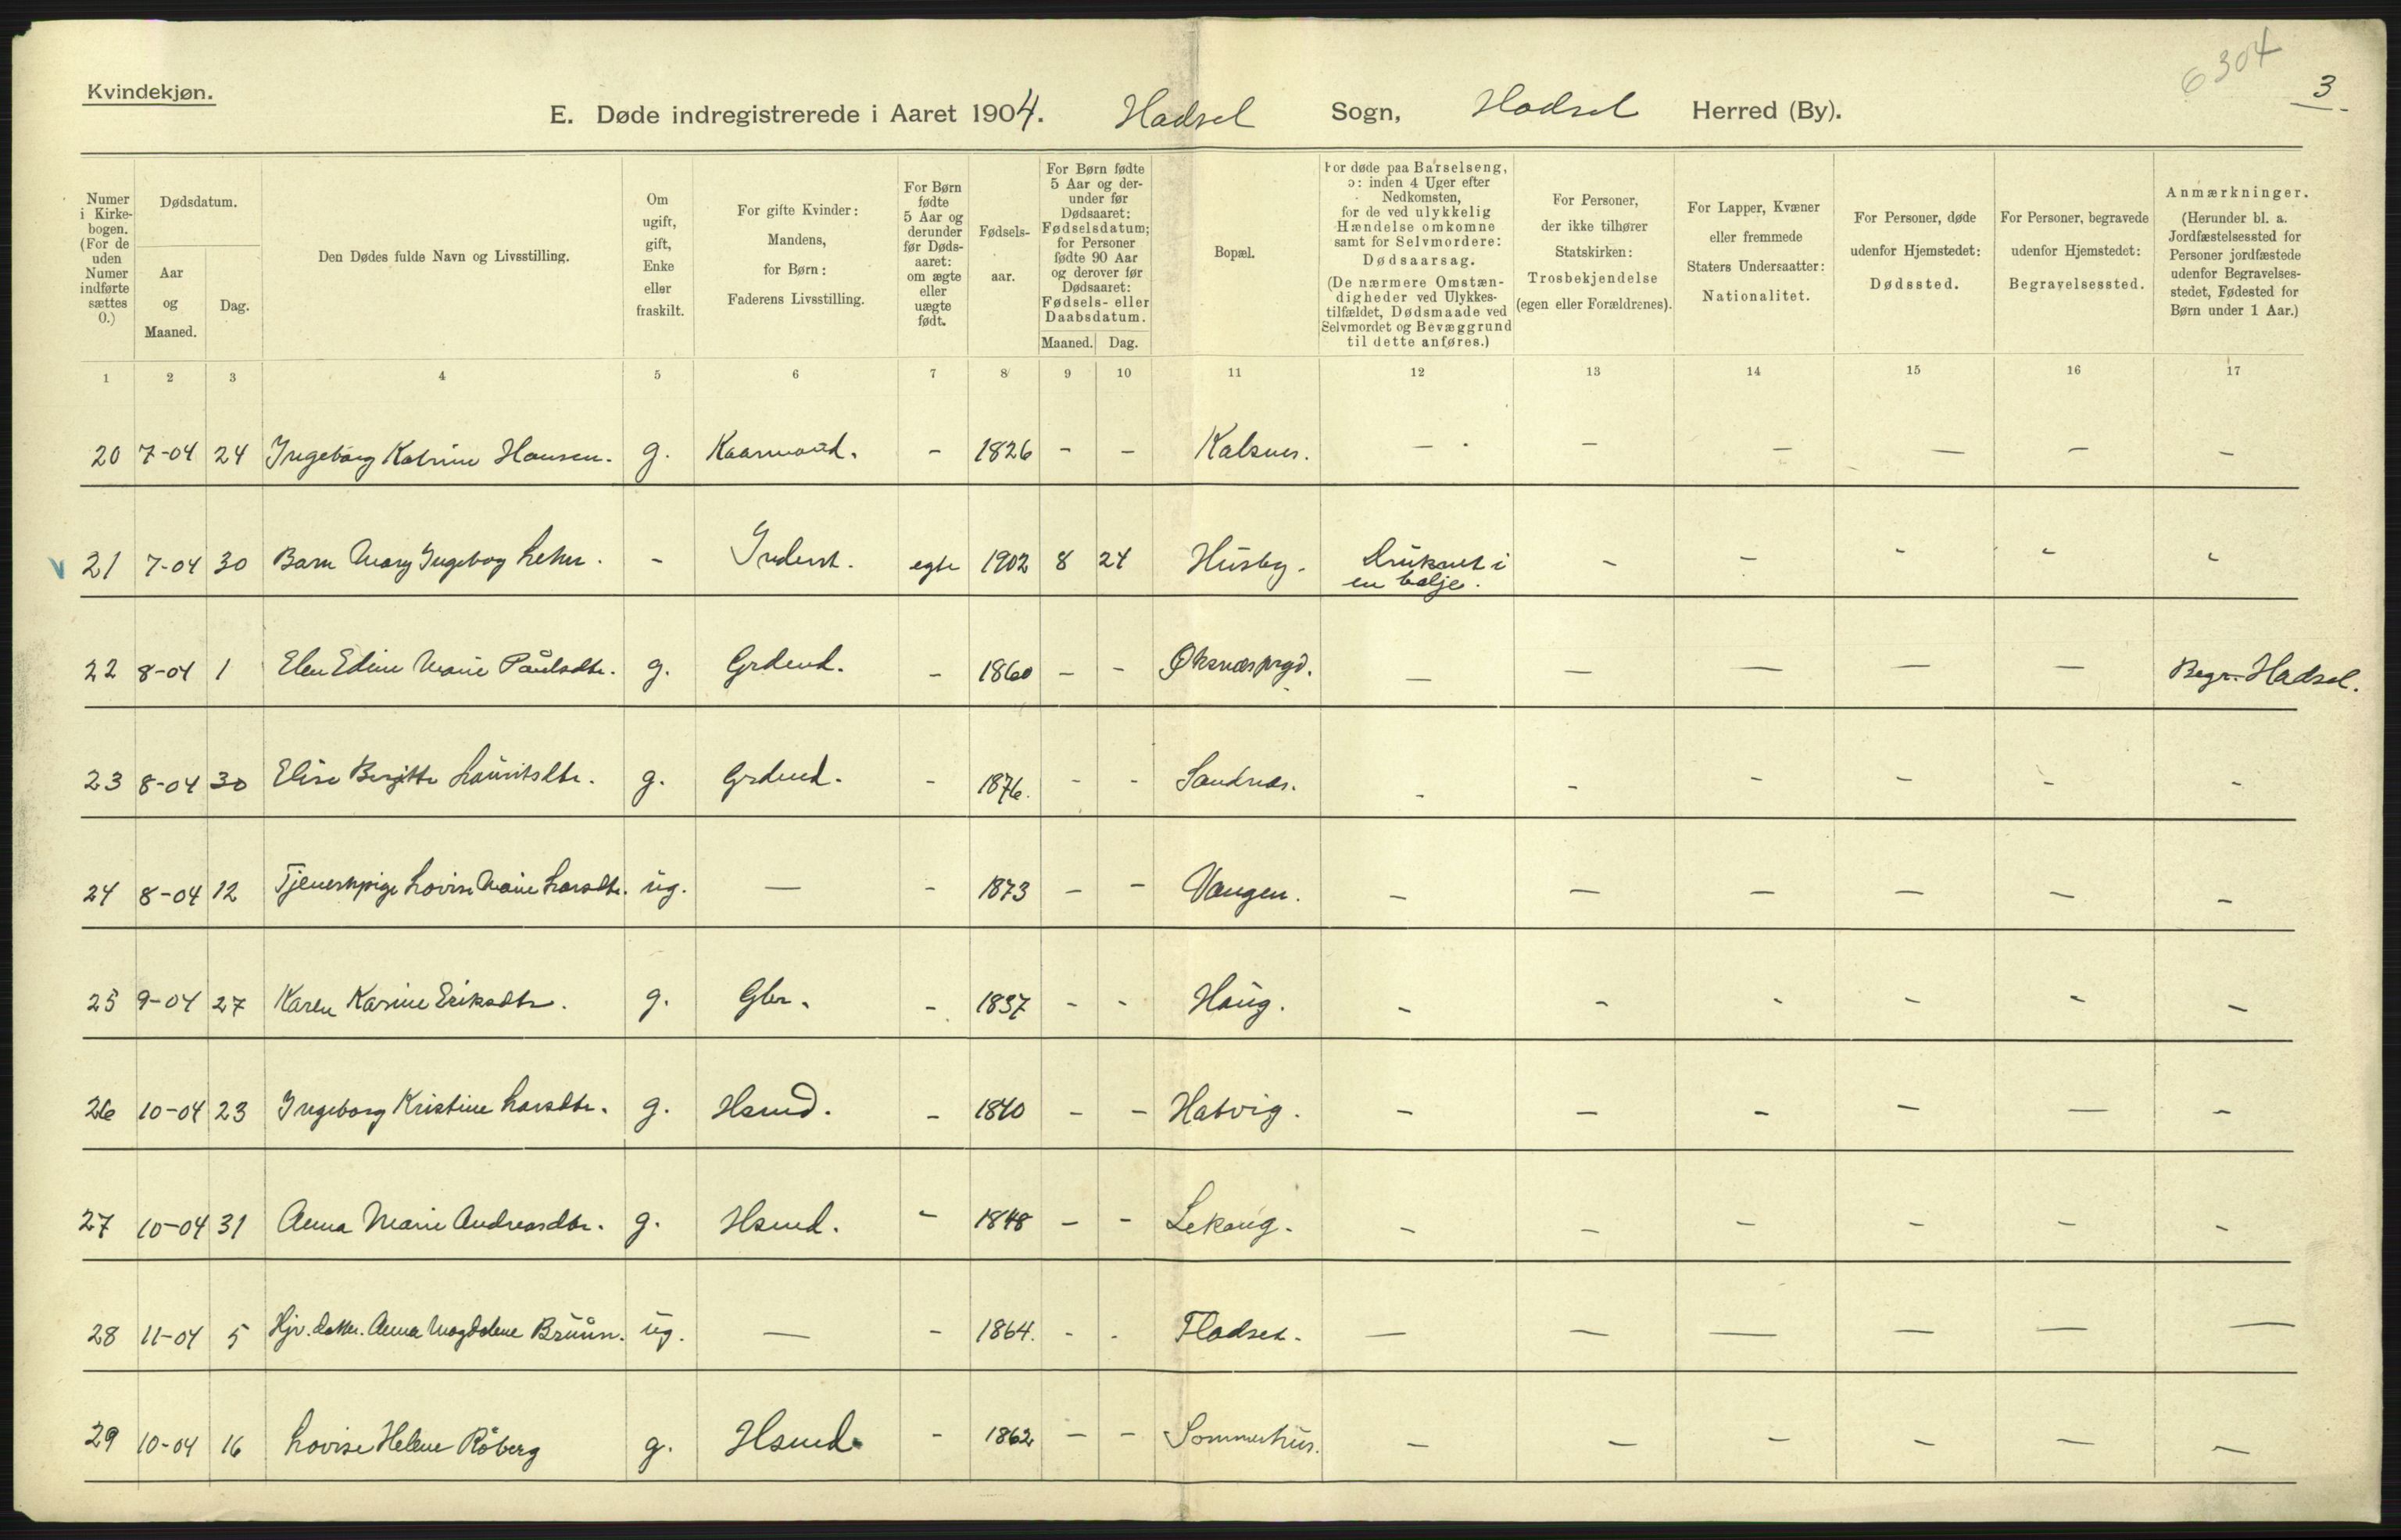 6304
3
Kvindekjøn.
E. Døde indregistrerede i Aaret 1904. Hadsel Sogn, Hadsel Herred (By).
Numer i Kirkebogen. (For de uden Numer indførte sættes 0.)
Dødsdatum.
Aar og Maaned.
Dag.
Den Dødes fulde Navn og Livsstilling.
Om ugift, gift, Enke eller fraskilt.
For gifte Kvinder: Mandens, for Børn: Faderens Livsstilling.
For Børn fødte 5 Aar og derunder før Dødsaaret: om ægte eller uægte født.
Fødselsaar.
For Børn fødte 5 Aar og derunder før Dødsaaret: Fødselsdatum; for Personer fødte 90 Aar og derover før Dødsaaret: Fødsels- eller Daabsdatum.
Maaned. Dag.
Bopæl.
For døde paa Barselseng, ɔ: inden 4 Uger efter Nedkomsten, for de ved ulykkelig Hændelse omkomne samt for Selvmordere: Dødsaarsag. (De nærmere Omstændigheder ved Ulykkestilfældet, Dødsmaade ved Selvmordet og Bevæggrund til dette anføres.)
For Personer, der ikke tilhører Statskirken: Trosbekjendelse (egen eller Forældrenes).
For Lapper, Kvæner eller fremmede Staters Undersaatter: Nationalitet.
For Personer, døde udenfor Hjemstedet: Dødssted.
For Personer, begravede udenfor Hjemstedet: Begravelsessted.
Anmærkninger. (Herunder bl. a. Jordfæstelsessted for Personer jordfæstede udenfor Begravelsesstedet, Fødested for Børn under 1 Aar.)
1 2 3 4 5 6 7 8 9 10 11 12 13 14 15 16 17
20 7-04 24 Ingeborg Katrine Hansen. g. Kaarmand. - 1826 - - Kalsnes. - - - - - -
21 7-04 30 Barn Mary Ingeborg - Inderst. egte 1902 8 24 Husby. Druknet i en balje. - - - - -
22 8-04 1 Elen Edine Marie Paulsdtr. g. Grdmd. - 1860 - - Øksnæs prgd. - - - - - Begr. Hadsel.
23 8-04 30 Elise Bergitte Lauritsdtr. g. Grdmd. - 1876. - - Sandnes. - - - - - -
24 8-04 12 Tjenestepige Lovise Marie Larsdtr. ug. - - 1873 - - Vangen. - - - - - -
25 9-04 27 Karen Karine Eriksdtr. g. Gbr. - 1837 - - Haug. - - - - - -
26 10-04 23 Ingeborg Kristine Larsdtr. g. Hsmd. - 1840 - - Hatvig. - - - - - -
27 10-04 31 Anna Marie Andreasdtr. g. Hsmd. - 1848 - - Lekang. - - - - - -
28 11-04 5 Anna Magdalene Bruun. ug. - - 1864. - - Fladset. - - - - - -
29 10-04 16 Lovise Helene Röberg g. Hsmd. - 1862 - - Sommerhus. - - - - - -